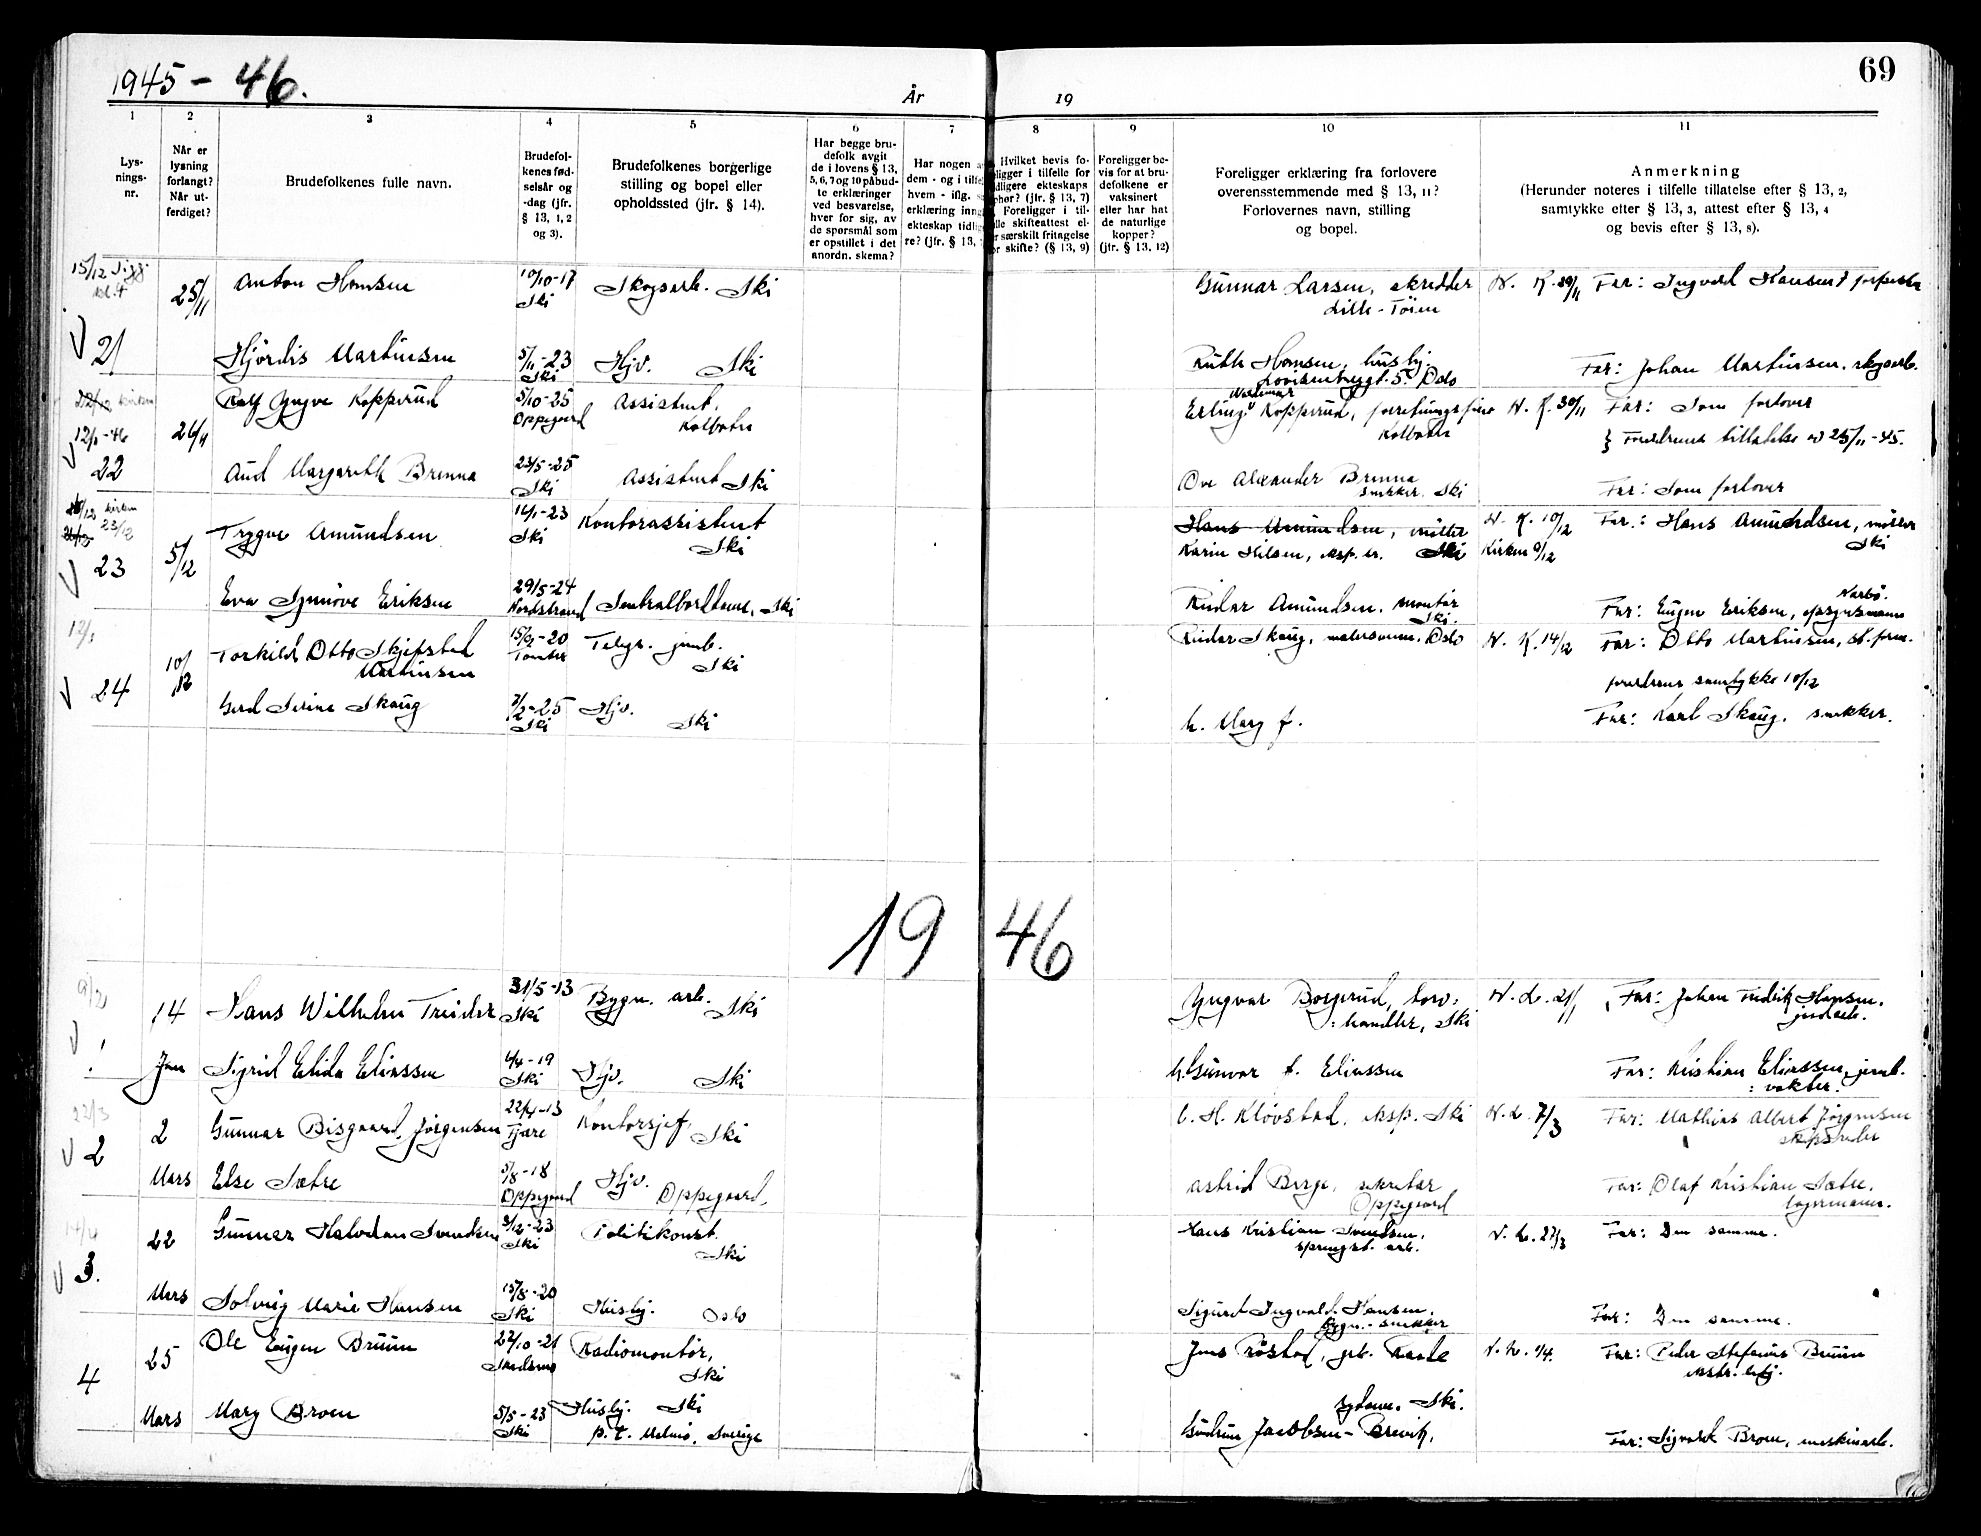 1945 - 46.
År
19
69
1
2
3
4
5
6
7
8
9
10
11
Lys-
nings-
nr.
Når er
lysning
forlangt?
Når ut-
ferdiget?
Brudefolkenes fulle navn.
Brudefol-
kenes fød-
selsår og
-dag (jfr.
§ 13, 1, 2
og 3).
Brudefolkenes borgerlige
stilling og bopel eller
opholdssted (jfr. § 14).
Har begge bru-
defolk avgit
de i lovens § 13,
5, 6, 7 og 10 påbud-
te erklæringer
ved besvarelse,
hver for sig, av
de spørsmål som
er opstillet i det
anordn. skema?
Har nogen
dem - og i tilfe
hvem - iflg.
erklæring inng
ekteskap tidlig
re? (jfr. § 13,
Hvilket bevis fo-
ligger i tilfelle for
dligere ekteskaps
phør? (jfr. § 13, 7)
Foreligger i til-
lle skifteattest el-
r særskilt fritagelse
or skifte? (§ 13, 9)
Foreligger be-
vis for at bru-
defolkene er
vaksinert
eller har hat
de naturlige
kopper?
(jfr. § 13, 12)
Foreligger erklæring fra forlovere
overensstemmende med § 13, 11?
Forlovernes navn, stilling
og bopel.
Anmerkning
(Herunder noteres i tilfelle tillatelse efter § 13, 2,
samtykke efter § 13, 3, attest efter § 13, 4
og bevis efter § 13, 8).
15/12
25/11
Anton Hansen
10/10-17
Ski
Skogsarb. Ski
Gunnar Larsen, skredder
Lille-Tøien
N. K. 29/11 Far: Ingvald Hansen
V 21
Hjördis Martinsen
5/11-23
Ski
Hjv. Ski
Ruth Hansen, husby
5. Oslo
Far: Johan Martinsen, skogsarb.
26/11
Rolf Yngve Kopperud
5/10-25
Oppegaard
Assistent.
Kolbotn
Erling Kopperud,
Kolbotn
N. K. 30/11 Far: Som forlover
Foreldrenes tillatelse 25/11-45.
12/1-46
V 22
Aud Margareth Brenna
23/5-25
Ski
Assistent Ski
Ove Alexander Brenna
snekker. Ski
Far: Som forlover
23/12
V 23
5/12
Trygve Amundsen
16/1-23
Ski
Kontorassistent
Ski
Hans Amundsen, møller
Karin Nilsen, Ski
N. K. 10/12
Kirken
Far: Hans Amundsen, møller
Ski
Eva Synnöve Eriksen
29/5-24
Nordstrand
Sentralborddame, Ski
Reidar Amundsen, montør
Ski.
Far: Eugen Eriksen,
12/1
V 24
10/12
Torkild Otto Skjefstad
Martinsen
15/3-20
Tomter
Telegr. jernb.
Ski
Reidar Skaug, Oslo
N. K. 14/12 Far: Otto Martinsen,
foreldrenes samtykke 10/12
Gerd Serine Skaug
7/2-25
Ski
Hjv.
Ski
h. Mary f.
Far: Karl Skaug. snekker.
1946
V 1
14
Jan
Hans Wilhelm Treider
31/5-13
Ski
Bygn. arb.
Ski
Yngvar Borgerud, torv:
:handler, Ski
N. L. 21/1
Far: Johan Fredrik Hansen.
Sigrid Elida Eliassen
4/4-19
Ski
Hjv. Ski
h. Gunvor f. Eliassen
Far: Kristian Eliassen, jernb.
:vokter.
22/3
V 2
2
Mars
Gunnar Bisgaard Jörgensen
22/4-13
Tjøre
Kontorsjef,
Ski
C. H. Klovstad, Ski
N. L. 7/3
Far: Mathias Albert Jörgensen
skipsreder
Else Sætre
5/8-18
Oppegaard
Hjv.
Oppegaard.
Astrid Berge, sekretær
Oppegaard
Far: Olaf Kristian Sætre,
lagermann.
V 3.
22
Mars
Gunnar Halvdan Svendsen
9/12-23
Ski
Politikonst.
Ski
Hans Kristian Svendsen,
sprengst. arb.
N. L. 27/3
Far: Den samme.
Solveig Marie Hansen
15/8-20
Ski
Husby. Oslo
Sigurd Ingvald Hansen.
Bygn.-snekker
Far: Den samme.
4
25
Mars
Ole Eugen Bruun
22/10-21
Radiomontør,
Ski
Jens Røstad,
N. L. 1/4.
Far: Peder Stefanus Bruun
Mary Broen
5/5-23
Ski
Husby. Ski
p. t. Malmö. Sverige
sydame. Ski.
Gudrun Jacobsen-Brevik,
Far: Sigvald Broen, maskinarb.